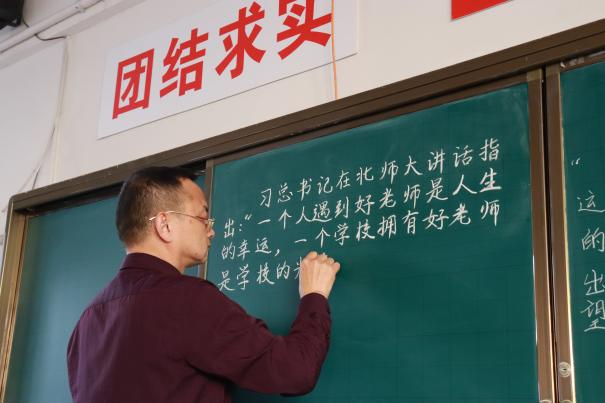 团结求实
习总书记在北师大讲话指
出:"一个人遇到好老师是人生
的幸运，一个学校拥有好老师
是学校的
"
运
的
出
望